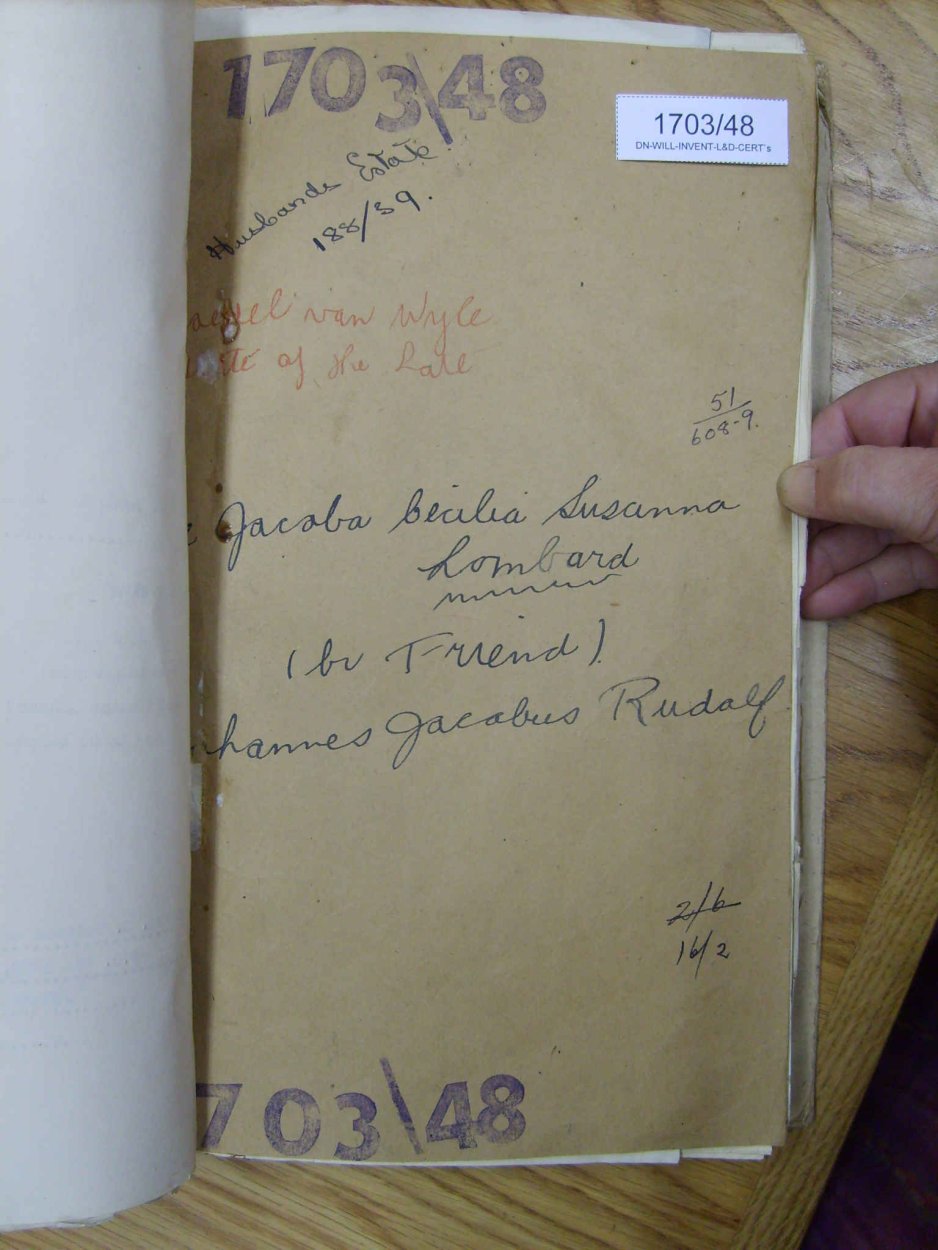 1703\48
1703/48
DN-WILL-INVENT-L&D-CERT's
Husbands Estate
188/39.
van Wyle
of the Late
51/608-9.
Jacoba Cecilia Susanna
Lombard
(br Friend).
hannes Jacobus Rudolf
2/6
16/2
703\48